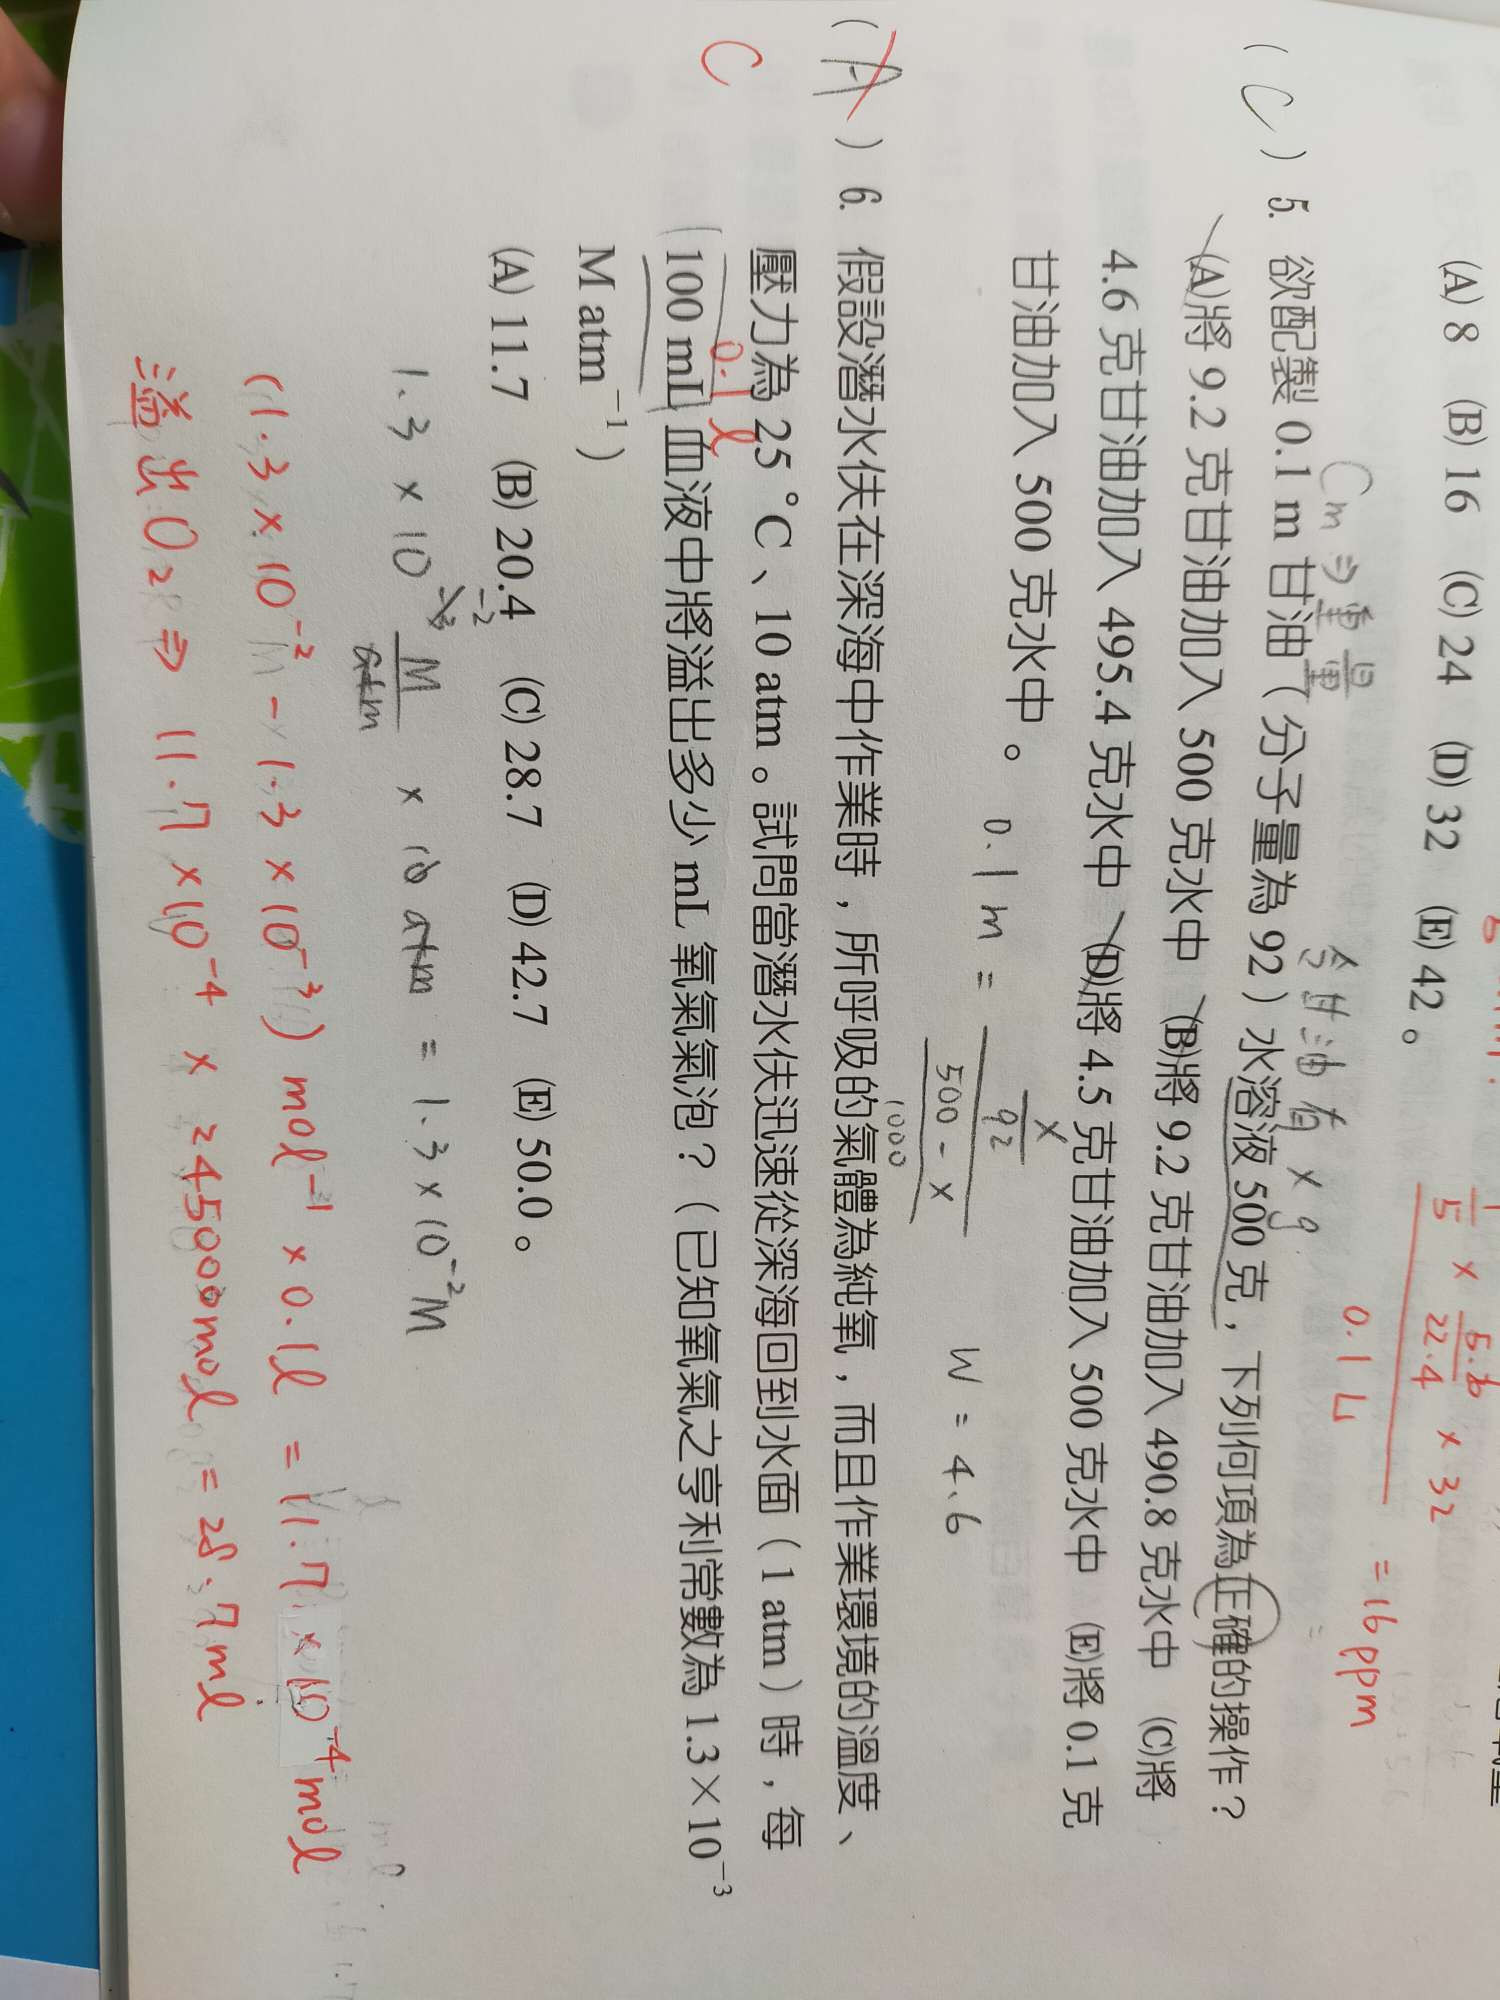 (A) 8 (B) 16 (C) 24 (D) 32 (E) 42。
1/5 × 5.6/22.4 × 32
0.1 L
= 16 ppm
Cm ⇒ 重量
令甘油有 x g
( C ) 5. 欲配製 0.1 m 甘油（分子量為 92）水溶液 500 克，下列何項為正確的操作？
(A)將 9.2 克甘油加入 500 克水中 (B)將 9.2 克甘油加入 490.8 克水中 (C)將
4.6 克甘油加入 495.4 克水中 (D)將 4.5 克甘油加入 500 克水中 (E)將 0.1 克
甘油加入 500 克水中。
0.1 m = x/92
500 - x
1000
W = 4.6
( A ) 6. 假設潛水伕在深海中作業時，所呼吸的氣體為純氧，而且作業環境的溫度、
C
壓力為 25 °C、10 atm。試問當潛水伕迅速從深海回到水面（1 atm）時，每
0.1 l
100 mL 血液中將溢出多少 mL 氧氣氣泡？（已知氧氣之亨利常數為 1.3×10⁻³
M atm⁻¹）
(A) 11.7 (B) 20.4 (C) 28.7 (D) 42.7 (E) 50.0。
1.3 × 10⁻² M/atm × 10 atm = 1.3 × 10⁻² M
(1.3 × 10⁻² - 1.3 × 10⁻³) mol⁻¹ × 0.1l = 11.7 × 10⁻⁴ mol
溢出O₂ ⇒ 11.7 × 10⁻⁴ × 24500mol = 28.7ml